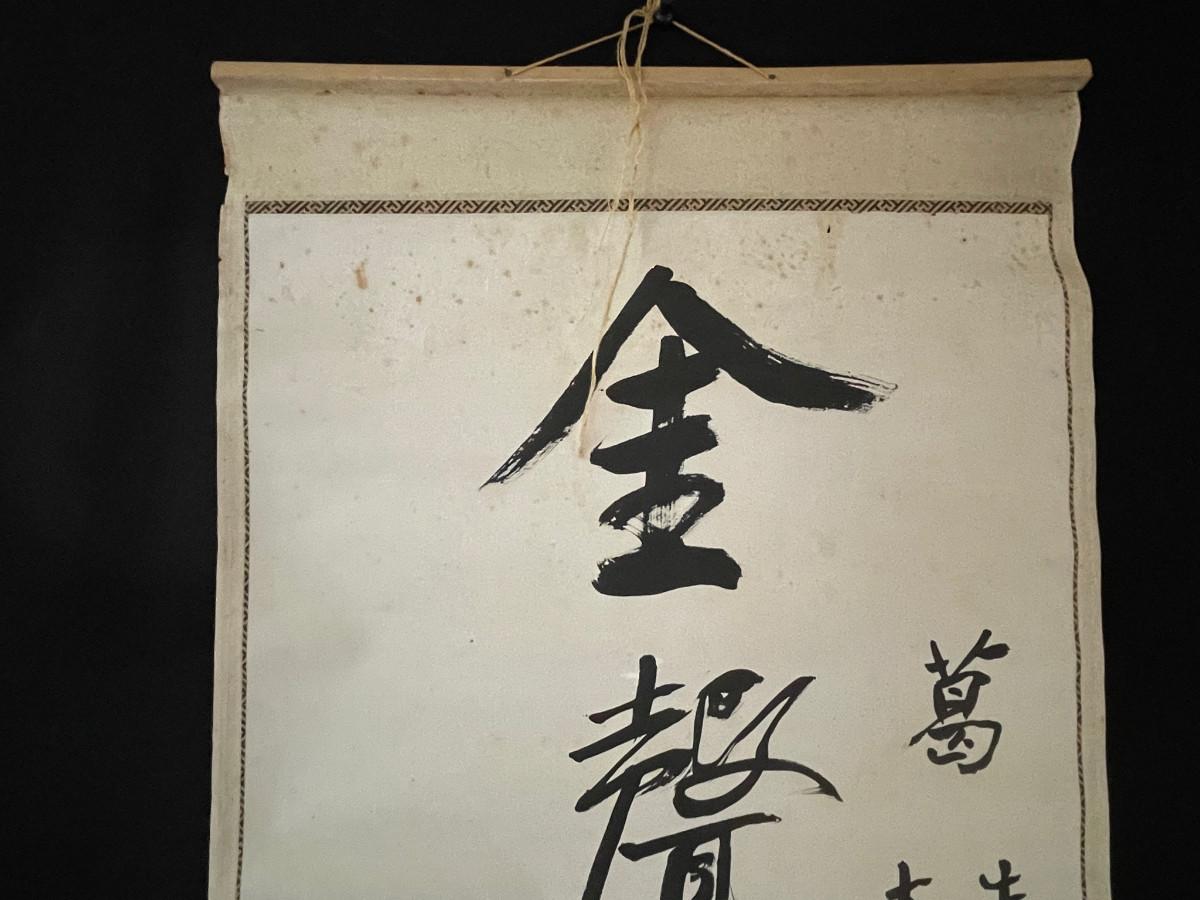 金聲
葛